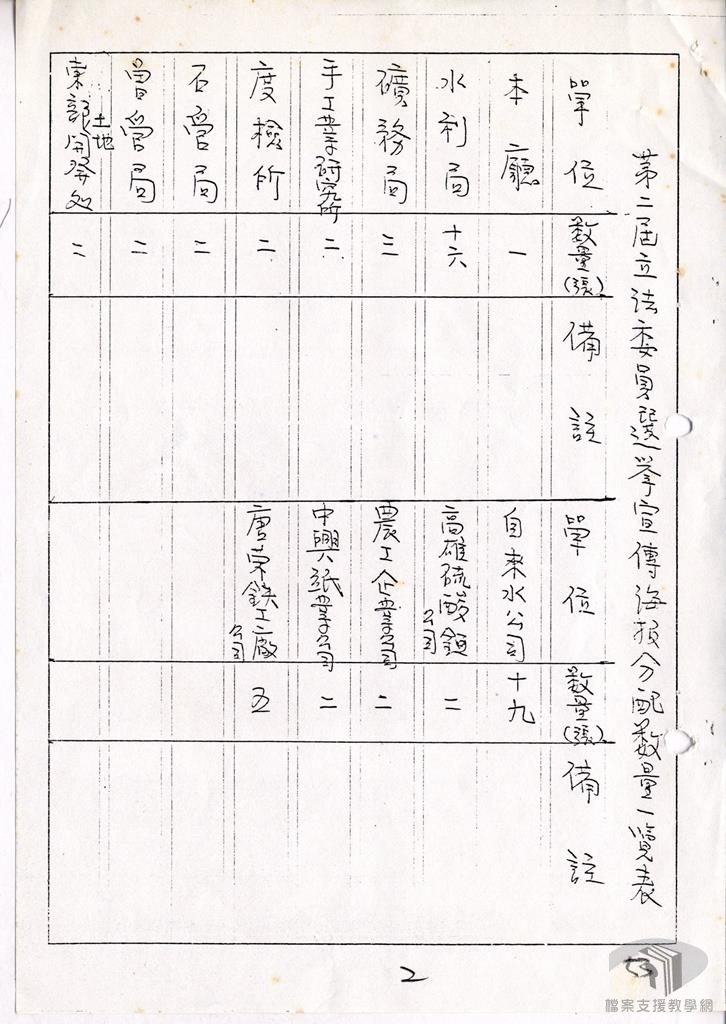 第二屆立法委員選举宣傳海报分配数量一覽表
單位 数量(張) 備註 單位 数量(張) 備註
本廳 一 自來水公司 十九
水利局 十六 高雄硫酸錏公司 二
礦務局 三 農工企業公司 二
手工業研究所 二 中興紙業公司 二
度檢所 二 唐荣鉄工廠公司 五
石管局 二
曾管局 二
東部土地開發处 二
2
53
檔案支援教學網